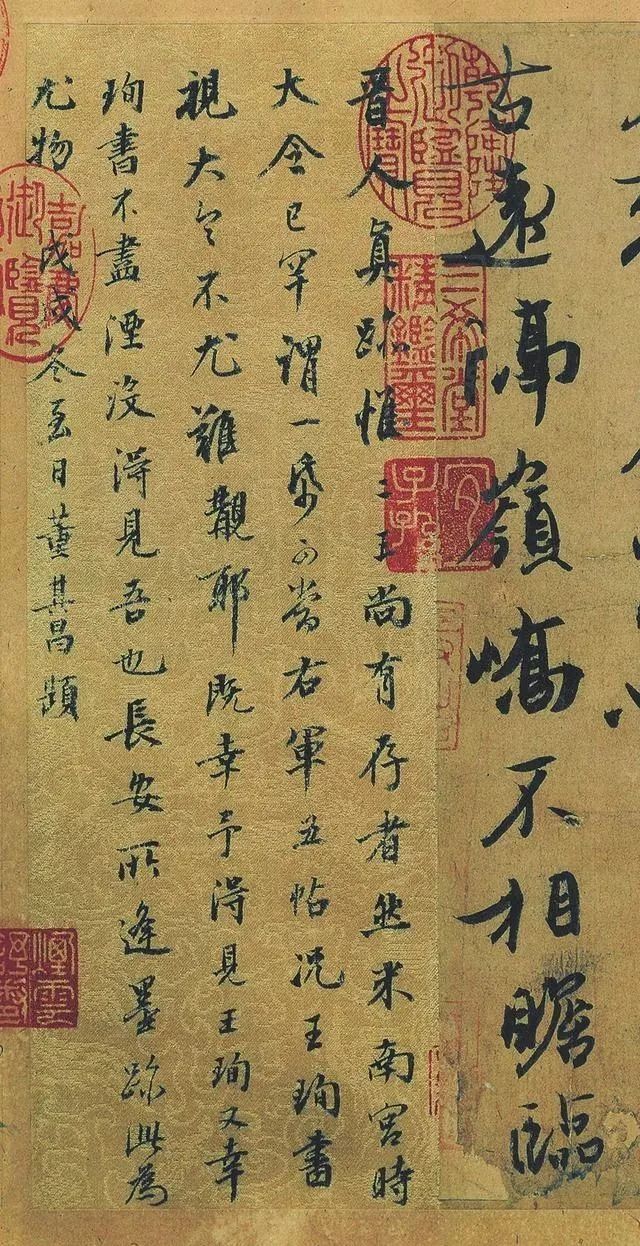 古遠隔嶺嶠不相瞻臨
晉人真跡惟二王尚有存者然米南宮時
大令已罕謂一紙可當右軍五帖況王珣書
視大令不尤難覯耶既幸予得見王珣又幸
珣書不盡湮沒得見吾也長安所逢墨跡此為
尤物戊戌冬至日董其昌題
乾隆御覽之寶
三希堂精鑑璽
宜子孫
嘉慶御覽